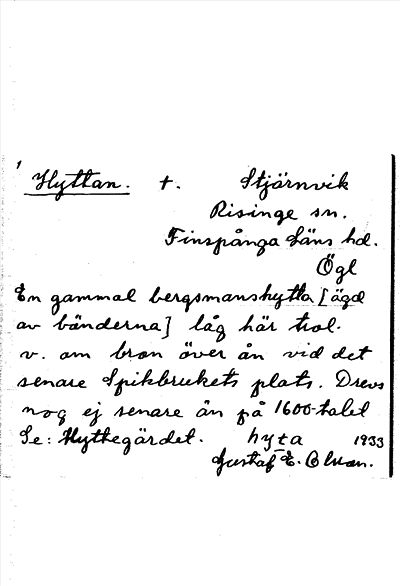 1
Hyttan. +. Stjärnvik
Risinge sn.
Finspånga Läns hd.
Ögl
En gammal bergsmanshytta [ägd
av bönderna] låg här trol.
v. om bron över ån vid det
senare Spikbrukets plats. Drevs
nog ej senare än på 1600-talet
Se: Hyttegärdet. hyta 1933
Gustaf E.